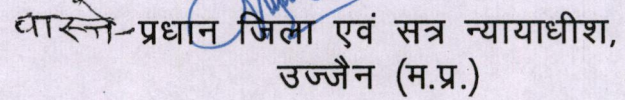 वास्ते-प्रधान जिला एवं सत्र न्यायाधीश,
उज्जैन (म.प्र.)